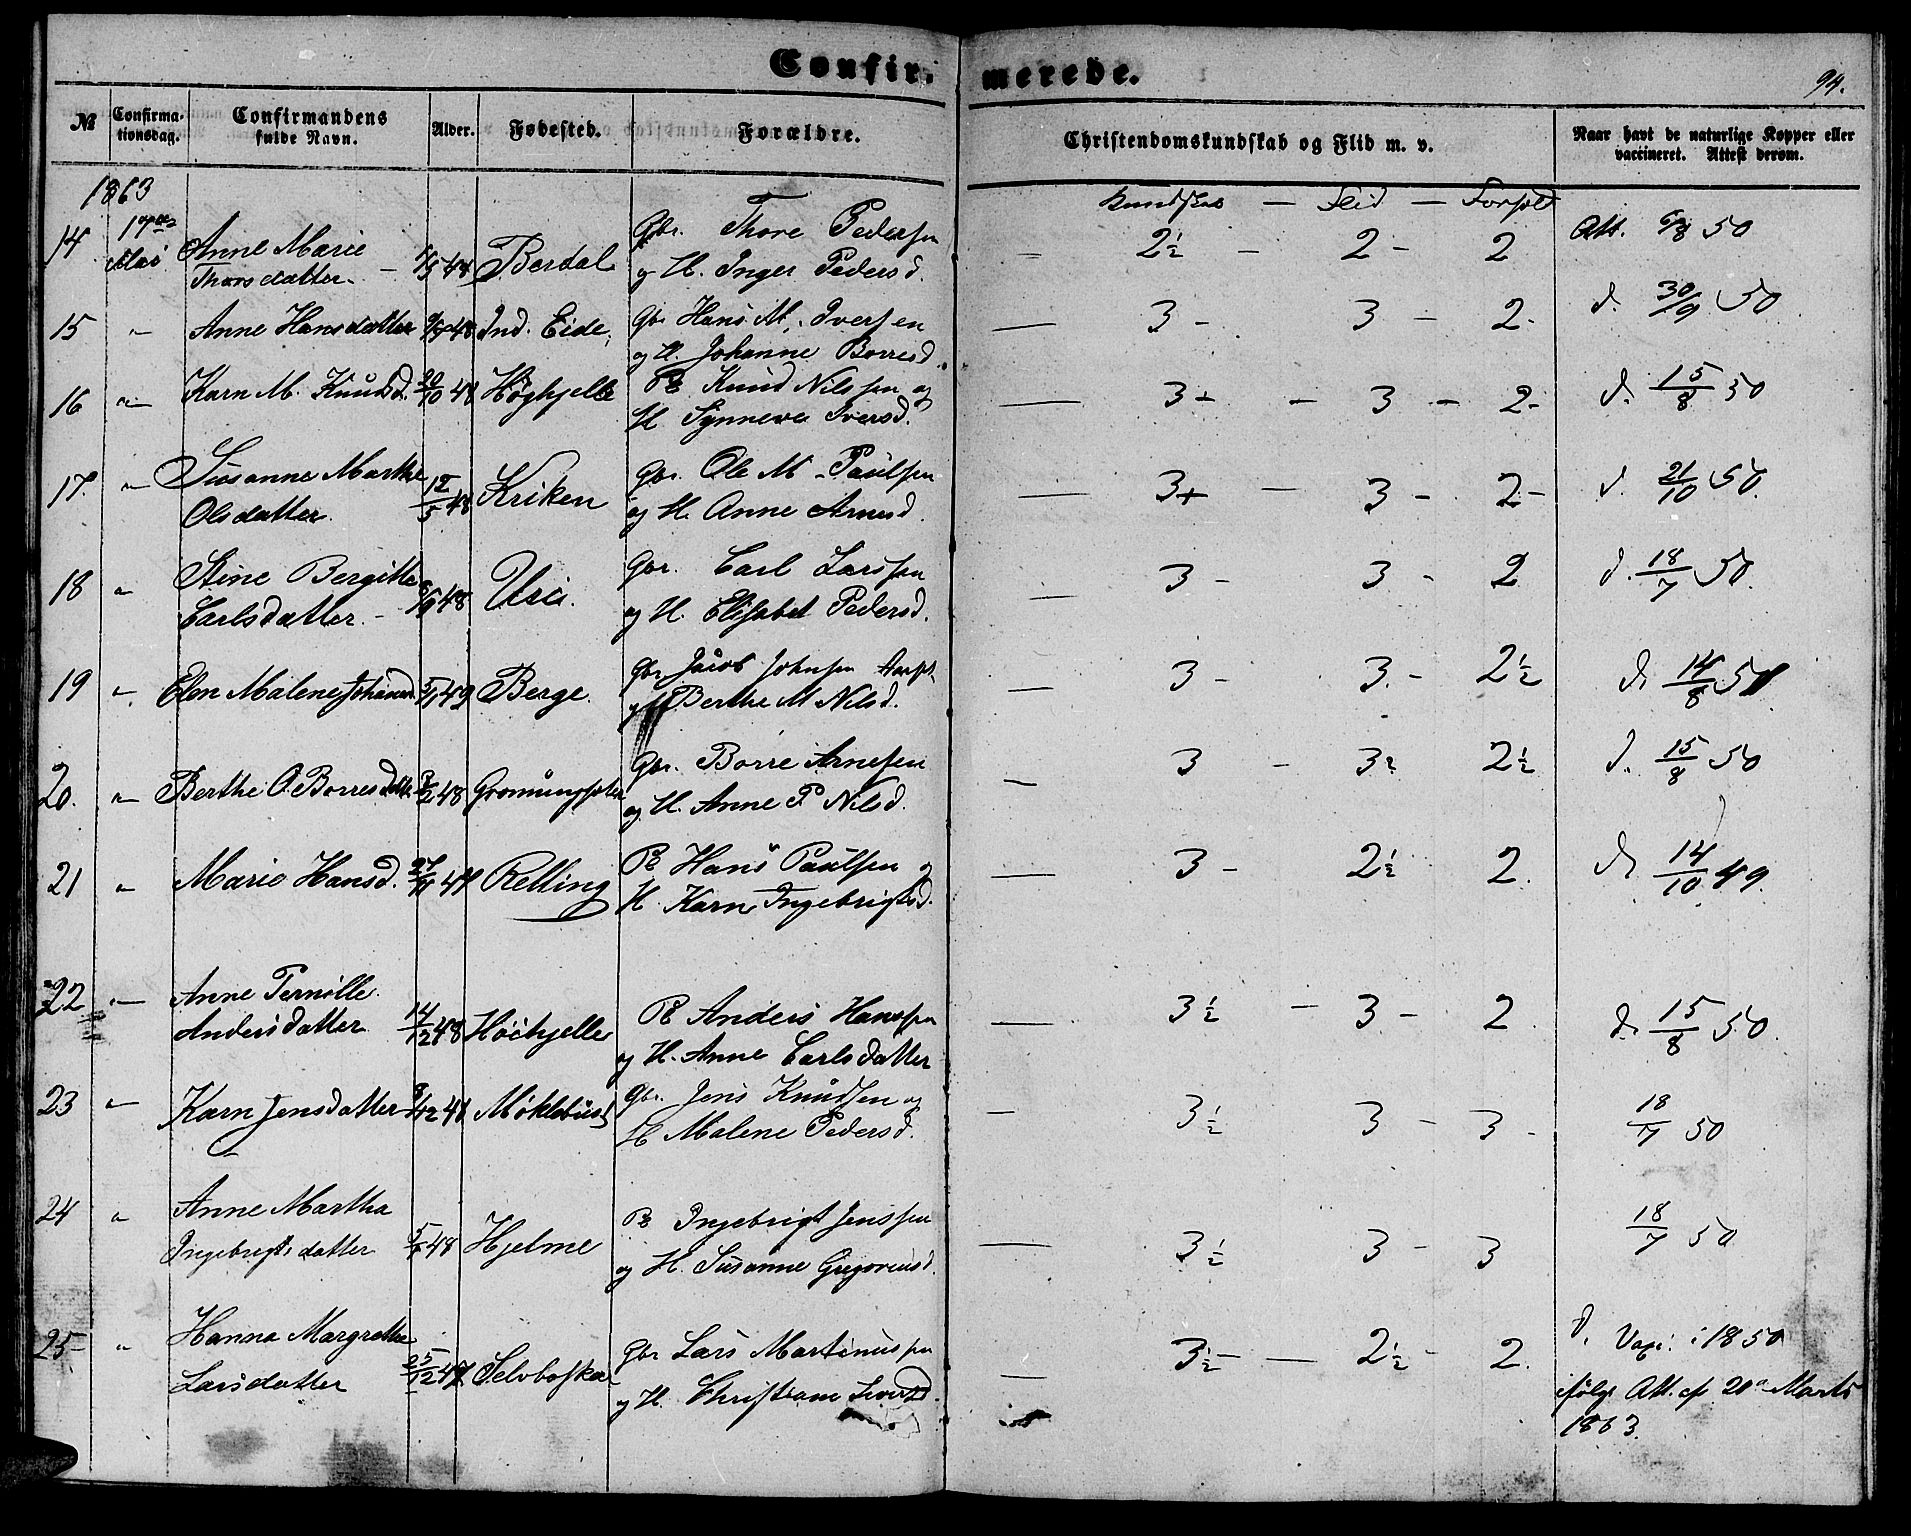 Confir. merede.
94.
№ Confirma- Confirmandens Alder. Fødested. Forældre. Christendomskundskab og Flid m. v. Naar havt de naturlige Kopper eller
tionsdag. fulde Navn. vaccineret. Attest derom.
1863 Kundskab — Flid — Forhold
14 17de Anne Marie Gbr. Thore Pedersen
Mai Thorsdatter 48 Berdal og H. Inger Pedersd. — 2½ — 2 — 2 Att. 6/8 50
15 " Anne Hansdatter 48 Ind. Eide, Gbr Hans M. Iversen
og H. Johanne Borresd. — 3 - 3 - 2- d. 30/9 50
16 " Karn M. Knudsd. 20/10 48 Høghjelle Pl Knud Nilssen og
H Synneve Iversd. — 3+ — 3 — 2- d. 15/8 50
17. " Susanne Marthe Gbr. Ole M. Paulsen
Olsdatter 12/5 48 Kriken og H. Anne Arnesd. — 3+ — 3 - 2- d. 21/10 50.
18 " Stine Bergitte Gbr. Carl Larssen
Carlsdatter 48 og H. Elisabet Pedersd. — 3 - 3 - 2 d. 18/7 50.
19 " Elen Malene 49 Berge. Gbr Jacob Johnsen
og H Berthe M Nilsd. — 3 - 3 - 2½ d. 14/8 50
20. " Berthe O. Borresdatt. 48 Gbr. Borre Arnesen
og H. Anne P Nilsd. — 3 - 3 2½ d. 15/8 50
21 " Marie Hansd. 47 Relling Pl Hans Paulsen og
H. Karn Ingebrigtsd. — 3 - 2½ 2. d. 14/10 49.
22 — Anne Pernille Pl Anders Hanssen
Andersdatter 14/12 48 Høihjelle og H. Anne Carlsdatter — 3½ — 3 - 2 d. 15/8 50.
23 " Karn Jensdatter 48 Møklebust Gbr. Jens Knudsen og
H Malene Pedersd. — 3½ 3 - 3 - 18/7 50
24 " Anne Martha Pl Ingebrigt Jenssen
Ingebrigtsdatter 48 Hjelme og H. Susanne Gregoriusd. — 3½ 3 - 3 18/7 50
25 " Hanna Margrethe Gbr Lars Martinussen
Larsdatter 25/12 47 og H. Christiane Iversd. — 3½ — 2½ - 2. d. Vaxi. i 1850
ifølge Att. af 20de Marts
1863.